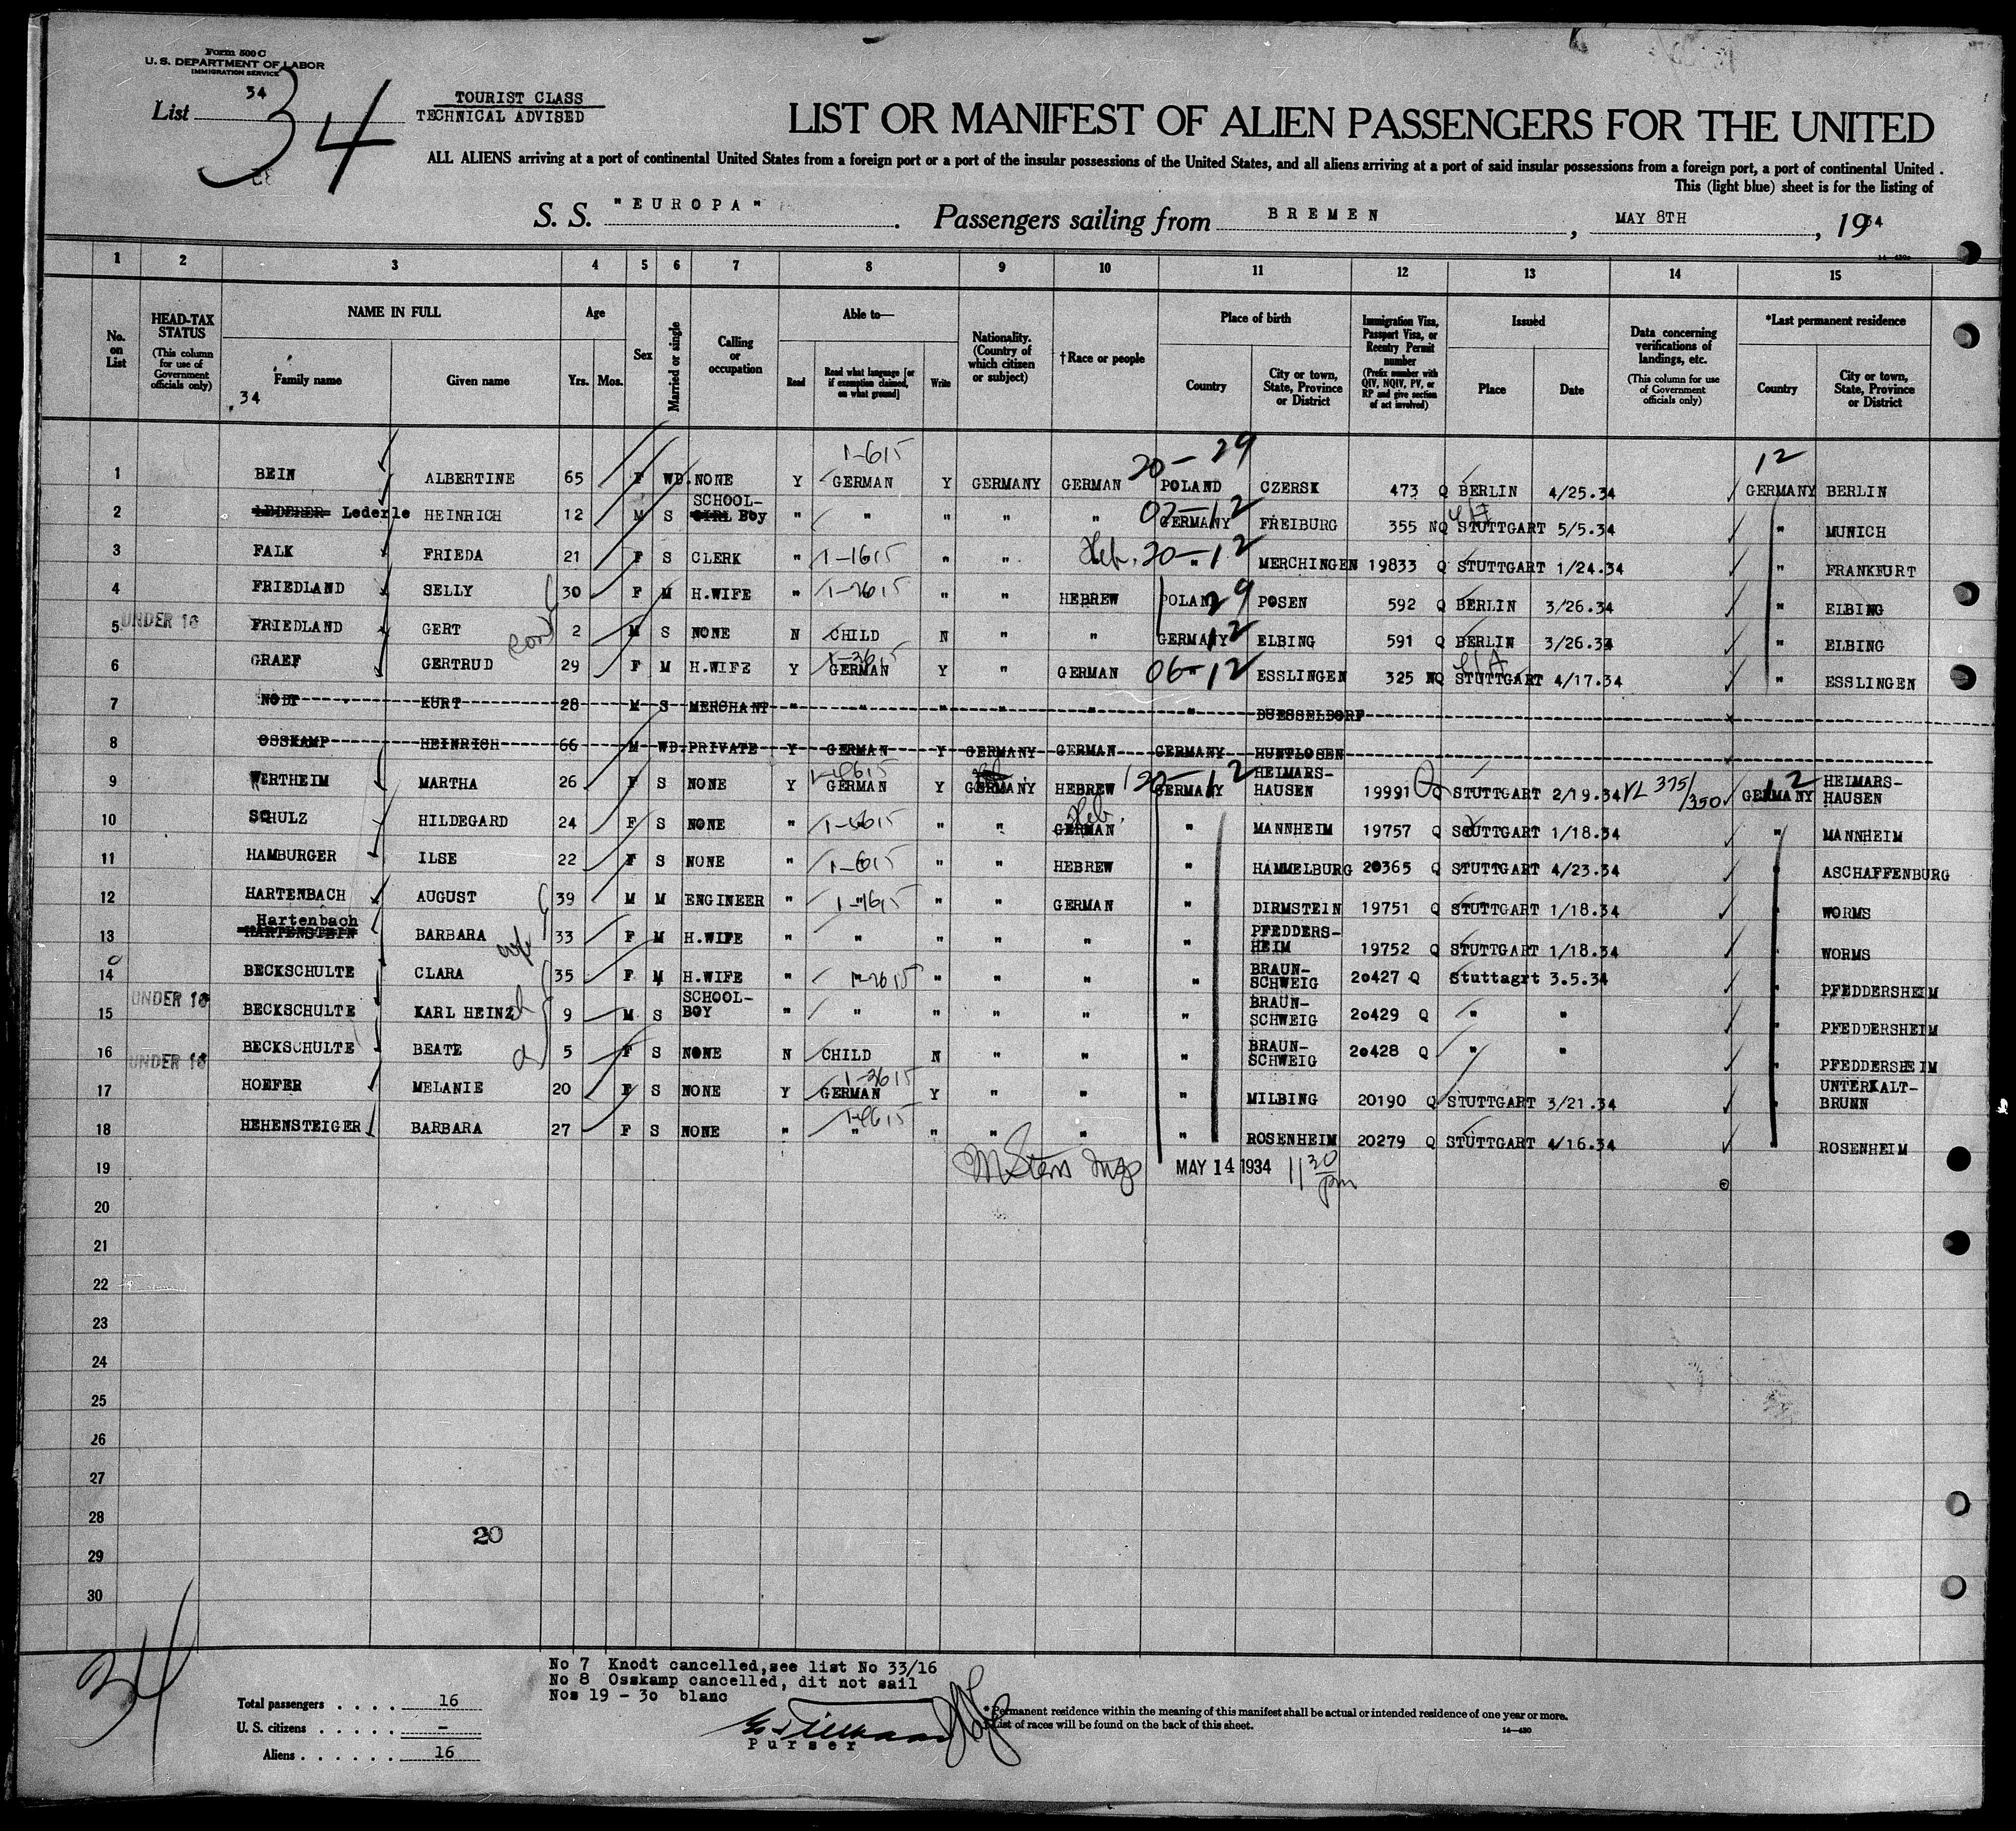 Form 500 C
U. S. DEPARTMENT OF LABOR
IMMIGRATION SERVICE
List 34
34
TOURIST CLASS
TECHNICAL ADVISED
LIST OR MANIFEST OF ALIEN PASSENGERS FOR THE UNITED
ALL ALIENS arriving at a port of continental United States from a foreign port or a port of the insular possessions of the United States, and all aliens arriving at a port of said insular possessions from a foreign port, a port of continental United
This (light blue) sheet is for the listing of
S. S. "EUROPA" . Passengers sailing from BREMEN , MAY 8TH , 1934
1 2 3 4 5 6 7 8 9 10 11 12 13 14 15
No. on List
HEAD-TAX STATUS (This column for use of Government officials only)
NAME IN FULL
Family name Given name
34
Age
Yrs. Mos.
Sex
Married or single
Calling or occupation
Able to—
Read Read what language [or if exemption claimed, on what ground] Write
Nationality. (Country of which citizen or subject)
†Race or people
Place of birth
Country City or town, State, Province or District
Immigration Visa, Passport Visa, or Reentry Permit number (Prefix number with QIV, NQIV, PV, or RP and give section of act involved)
Issued
Place Date
Data concerning verifications of landings, etc. (This column for use of Government officials only)
*Last permanent residence
Country City or town, State, Province or District
1-615 20-29 12
1 BEIN ALBERTINE 65 F WD. NONE Y GERMAN Y GERMANY GERMAN POLAND CZERSK 473 Q BERLIN 4/25.34 GERMANY BERLIN
2 LEDERER Lederle HEINRICH 12 M S SCHOOL-GIRL Boy " " " " " 02-12 GERMANY FREIBURG 355 NQ STUTTGART 5/5.34 " MUNICH
3 FALK FRIEDA 21 F S CLERK " 1-1615 " " Heb. 20-12 " MERCHINGEN 19833 Q STUTTGART 1/24.34 " FRANKFURT
4 FRIEDLAND SELLY 30 F M H.WIFE " 1-2615 " " HEBREW POLAND 29 POSEN 592 Q BERLIN 3/26.34 " ELBING
5 UNDER 16 FRIEDLAND GERT 2 M S NONE N CHILD N " " GERMANY 12 ELBING 591 Q BERLIN 3/26.34 " ELBING
6 GRAEF GERTRUD 29 F M H.WIFE Y 1-3615 GERMAN Y " GERMAN 06-12 ESSLINGEN 325 NQ STUTTGART 4/17.34 " ESSLINGEN
7 NODT KURT 28 M S MERCHANT " " " " " " DUESSELDORF
8 OSSKAMP HEINRICH 66 M WD. PRIVATE Y GERMAN Y GERMANY GERMAN GERMANY HUNTLOSEN
9 WERTHEIM MARTHA 26 F S NONE Y 1-4615 GERMAN Y GERMANY HEBREW 20-12 GERMANY HEIMARS-HAUSEN 19991 Q STUTTGART 2/19.34 VL 375/350 12 GERMANY HEIMARS-HAUSEN
10 SCHULZ HILDEGARD 24 F S NONE " " " Heb. GERMAN " MANNHEIM 19757 Q STUTTGART 1/18.34 " MANNHEIM
11 HAMBURGER ILSE 22 F S NONE " 1-615 " " HEBREW " HAMMELBURG 20365 Q STUTTGART 4/23.34 " ASCHAFFENBURG
12 HARTENBACH AUGUST 39 M M ENGINEER " 1-1615 " " GERMAN " DIRMSTEIN 19751 Q STUTTGART 1/18.34 " WORMS
13 Hartenbach HARTENSTEIN BARBARA wife 33 F M H.WIFE " " " " " " PFEDDERS-HEIM 19752 Q STUTTGART 1/18.34 " WORMS
14 BECKSCHULTE CLARA 35 F M H.WIFE " 1-2615 " " " " BRAUN-SCHWEIG 20427 Q Stuttagrt 3.5.34 " PFEDDERSHEIM
15 UNDER 16 BECKSCHULTE KARL HEINZ 9 M S SCHOOL-BOY " " " " " " BRAUN-SCHWEIG 20429 Q " " " PFEDDERSHEIM
16 UNDER 16 BECKSCHULTE BEATE d 5 F S NONE N CHILD N " " " BRAUN-SCHWEIG 20428 Q " " " PFEDDERSHEIM
17 HOEFER MELANIE 20 F S NONE Y 1-3615 GERMAN Y " " " MILBING 20190 Q STUTTGART 3/21.34 " UNTERKALT-BRUNN
18 HEHENSTEIGER BARBARA 27 F S NONE " 1-4615 " " " " " ROSENHEIM 20279 Q STUTTGART 4/16.34 ROSENHEIM
19 MAY 14 1934 11 30 pm
20
21
22
23
24
25
26
27
28
20
29
30
34
No 7 Knodt cancelled,see list No 33/16
No 8 Osskamp cancelled, dit not sail
Nos 19 - 30 blanc
Total passengers . . . . 16
U. S. citizens . . . . . –
Aliens . . . . . . 16
Purser
* Permanent residence within the meaning of this manifest shall be actual or intended residence of one year or more.
† List of races will be found on the back of this sheet.
14—430